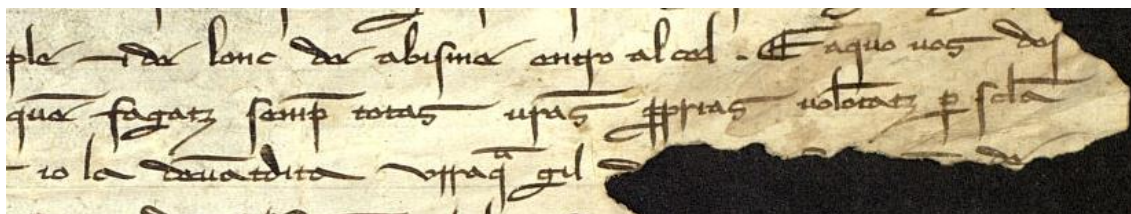 ple ⁊ de lonc de abisme entro al cel . E aquo uos do
que fagatz semp̄ totas ur̄as ꝓprias uolōtatz ꝑ secl̄a
io la deuātdita urraq̄ gil